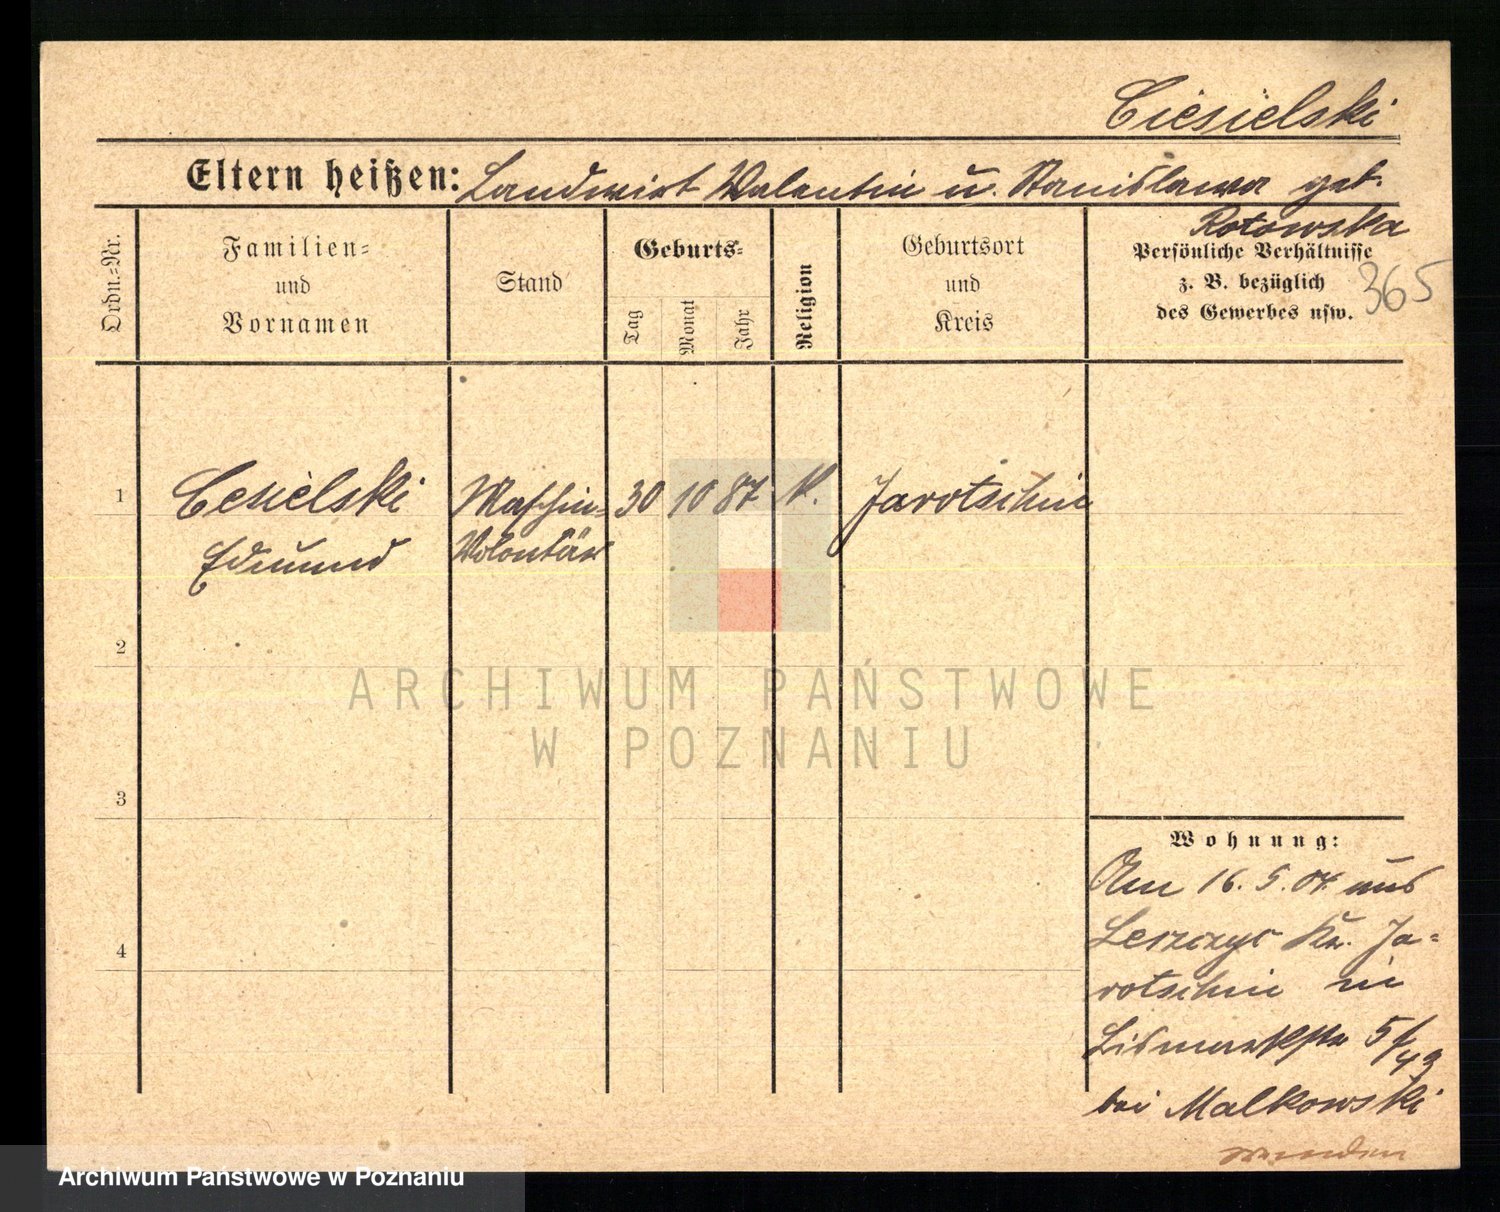 Ciesielski
Eltern heißen: Landwirt Valentin u. Stanislawa geb.
Rotowska
Ordn.=Nr.
Familien=
und
Vornamen
Stand
Geburts=
Tag
Monat
Jahr
Religion
Geburtsort
und
Kreis
Persönliche Verhältnisse
z. B. bezüglich
des Gewerbes usw.
365
1
Cesielski
Edmund
Maschin=
Volontär
30 10 87 K. Jarotschin
2
3
4
Wohnung:
Am 16. 5. 04 aus
Kr. Ja=
rotschin in
Bismarckstr 5/
bei Malkowski
wenden
ARCHIWUM PAŃSTWOWE
W POZNANIU
Archiwum Państwowe w Poznaniu